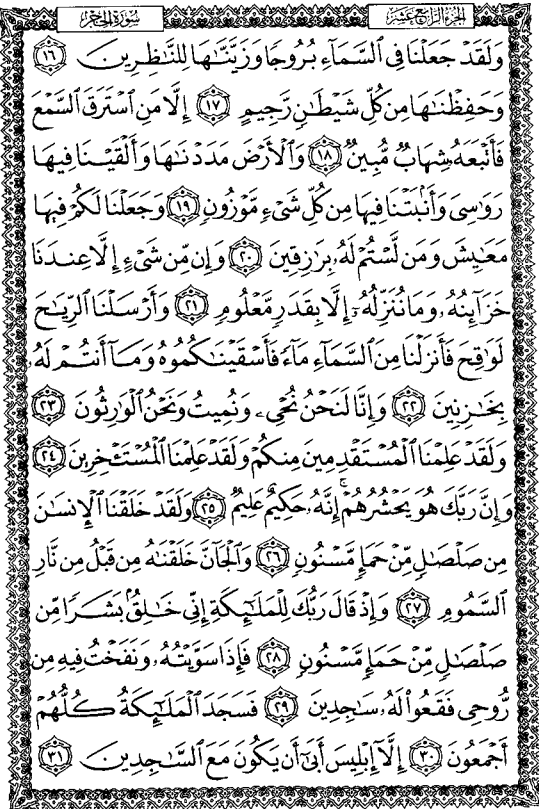 الجزء الرابع عشر سورة الحجر
وَلَقَدْ جَعَلْنَا فِي ٱلسَّمَآءِ بُرُوجًا وَزَيَّنَّٰهَا لِلنَّٰظِرِينَ ١٦
وَحَفِظْنَٰهَا مِن كُلِّ شَيْطَٰنٍ رَّجِيمٍ ١٧ إِلَّا مَنِ ٱسْتَرَقَ ٱلسَّمْعَ
فَأَتْبَعَهُۥ شِهَابٌ مُّبِينٌ ١٨ وَٱلْأَرْضَ مَدَدْنَٰهَا وَأَلْقَيْنَا فِيهَا
رَوَٰسِىَ وَأَنۢبَتْنَا فِيهَا مِن كُلِّ شَىْءٍ مَّوْزُونٍ ١٩ وَجَعَلْنَا لَكُمْ فِيهَا
مَعَٰيِشَ وَمَن لَّسْتُمْ لَهُۥ بِرَٰزِقِينَ ٢٠ وَإِن مِّن شَىْءٍ إِلَّا عِندَنَا
خَزَآئِنُهُۥ وَمَا نُنَزِّلُهُۥٓ إِلَّا بِقَدَرٍ مَّعْلُومٍ ٢١ وَأَرْسَلْنَا ٱلرِّيَٰحَ
لَوَٰقِحَ فَأَنزَلْنَا مِنَ ٱلسَّمَآءِ مَآءً فَأَسْقَيْنَٰكُمُوهُ وَمَآ أَنتُمْ لَهُۥ
بِخَٰزِنِينَ ٢٢ وَإِنَّا لَنَحْنُ نُحْىِۦ وَنُمِيتُ وَنَحْنُ ٱلْوَٰرِثُونَ ٢٣
وَلَقَدْ عَلِمْنَا ٱلْمُسْتَقْدِمِينَ مِنكُمْ وَلَقَدْ عَلِمْنَا ٱلْمُسْتَـْٔخِرِينَ ٢٤
وَإِنَّ رَبَّكَ هُوَ يَحْشُرُهُمْ ۚ إِنَّهُۥ حَكِيمٌ عَلِيمٌ ٢٥ وَلَقَدْ خَلَقْنَا ٱلْإِنسَٰنَ
مِن صَلْصَٰلٍ مِّنْ حَمَإٍ مَّسْنُونٍ ٢٦ وَٱلْجَآنَّ خَلَقْنَٰهُ مِن قَبْلُ مِن نَّارِ
ٱلسَّمُومِ ٢٧ وَإِذْ قَالَ رَبُّكَ لِلْمَلَٰٓئِكَةِ إِنِّى خَٰلِقٌۢ بَشَرًا مِّن
صَلْصَٰلٍ مِّنْ حَمَإٍ مَّسْنُونٍ ٢٨ فَإِذَا سَوَّيْتُهُۥ وَنَفَخْتُ فِيهِ مِن
رُّوحِى فَقَعُوا۟ لَهُۥ سَٰجِدِينَ ٢٩ فَسَجَدَ ٱلْمَلَٰٓئِكَةُ كُلُّهُمْ
أَجْمَعُونَ ٣٠ إِلَّآ إِبْلِيسَ أَبَىٰٓ أَن يَكُونَ مَعَ ٱلسَّٰجِدِينَ ٣١